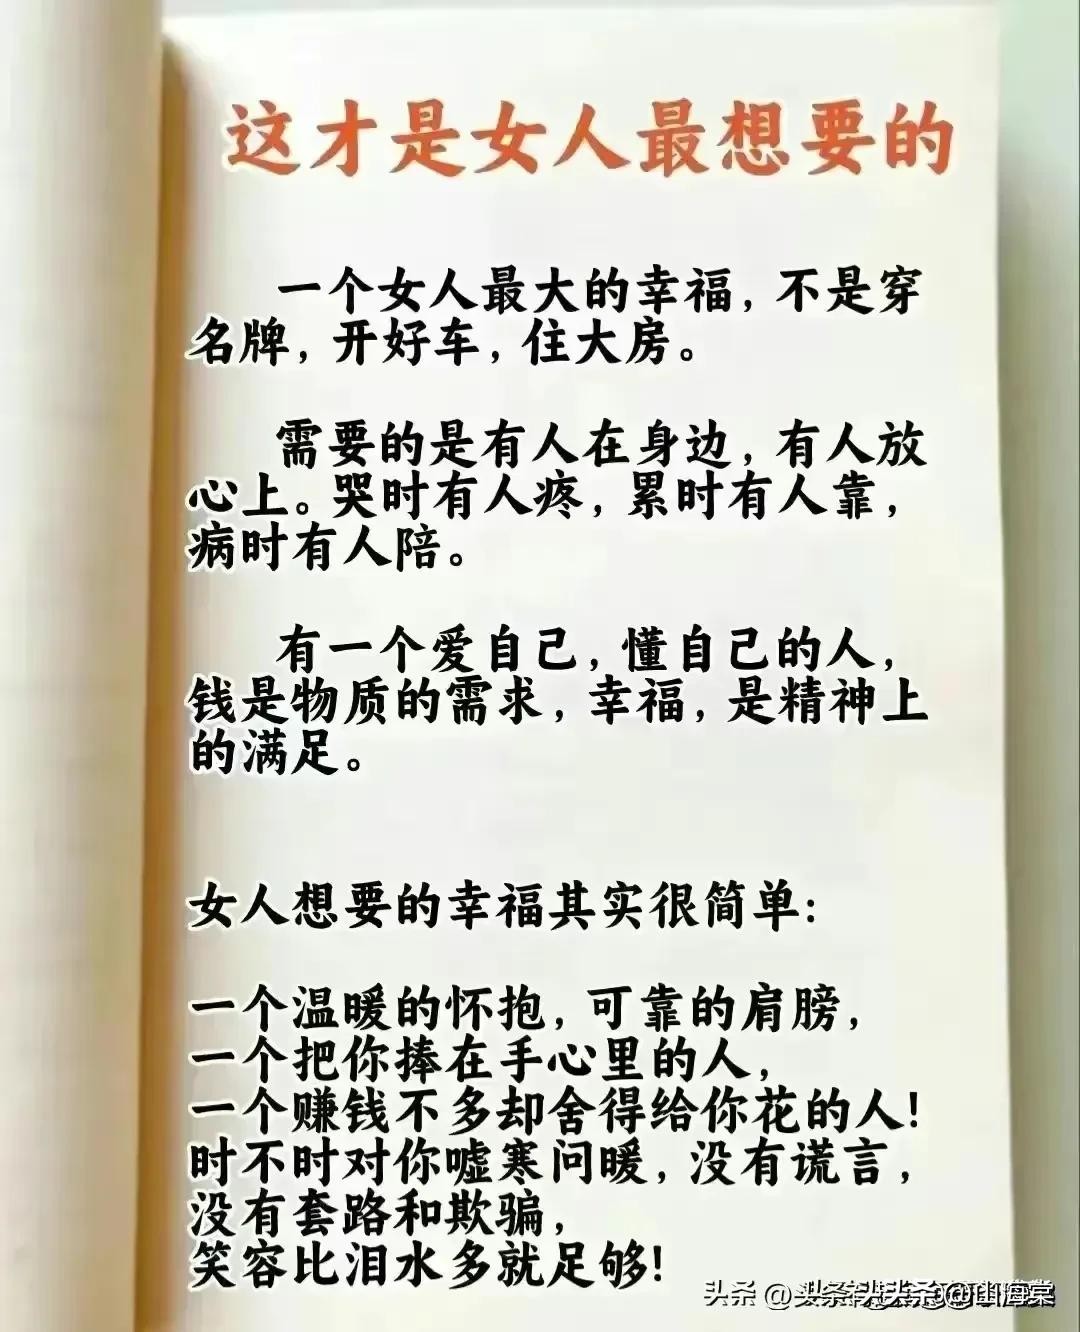 这才是女人最想要的
一个女人最大的幸福，不是穿
名牌，开好车，住大房。
需要的是有人在身边，有人放
心上。哭时有人疼，累时有人靠，
病时有人陪。
有一个爱自己，懂自己的人，
钱是物质的需求，幸福，是精神上
的满足。
女人想要的幸福其实很简单：
一个温暖的怀抱，可靠的肩膀，
一个把你捧在手心里的人，
一个赚钱不多却舍得给你花的人！
时不时对你嘘寒问暖，没有谎言，
没有套路和欺骗，
笑容比泪水多就足够！
头条 @